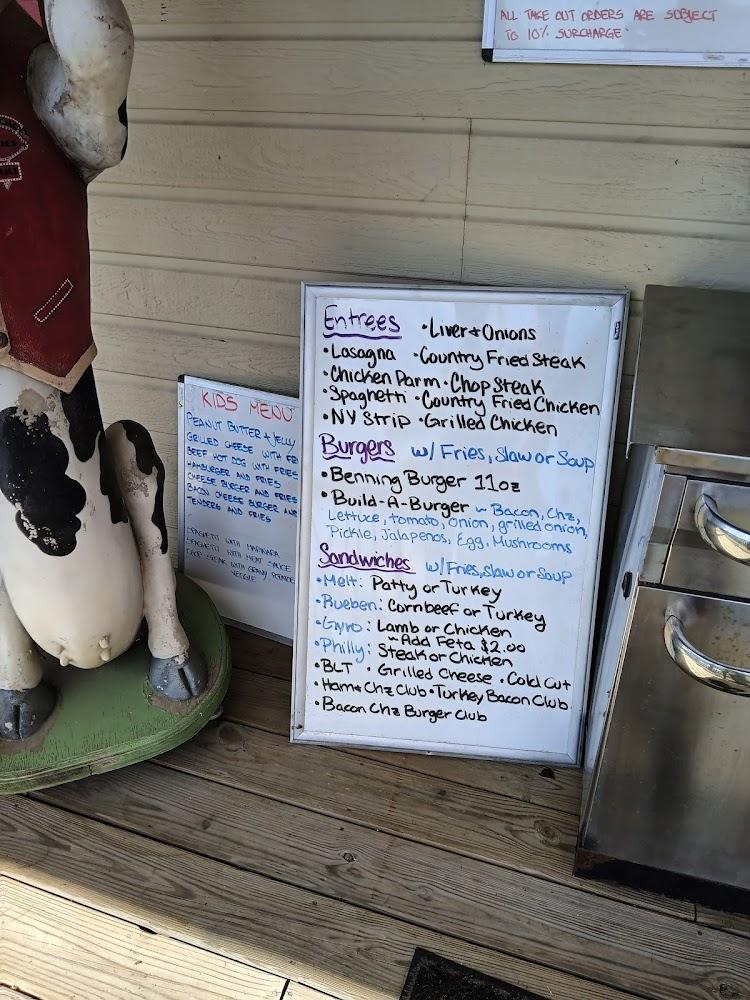 ALL TAKE OUT ORDERS ARE SUBJECT
TO 10% SURCHARGE
Entrees • Liver & Onions
• Lasagna • Country Fried Steak
• Chicken Parm • Chop Steak
• Spaghetti • Country Fried Chicken
• NY Strip • Grilled Chicken
Burgers w/ Fries, Slaw or Soup
• Benning Burger 11oz
• Build-A-Burger ~ Bacon, Chz,
Lettuce, tomato, onion, grilled onion,
Pickle, Jalapenos, Egg, Mushrooms
Sandwiches w/ Fries, Slaw or Soup
• Melt: Patty or Turkey
• Rueben: Cornbeef or Turkey
• Gyro: Lamb or Chicken
~ Add Feta $2.00
• Philly: Steak or Chicken
• BLT • Grilled Cheese • Cold Cut
• Ham & Chz Club • Turkey Bacon Club
• Bacon Chz Burger Club
KIDS MENU
PEANUT BUTTER & JELLY
GRILLED CHEESE WITH FR
BEEF HOT DOG WITH FRIES
HAMBURGER AND FRIES
CHEESE BURGER AND FRIES
BACON CHEESE BURGER AND
TENDERS AND FRIES
SPAGHETTI WITH MARINARA
SPAGHETTI WITH MEAT SAUCE
CHOP STEAK WITH GRAVY POTATOE
VEGGIE